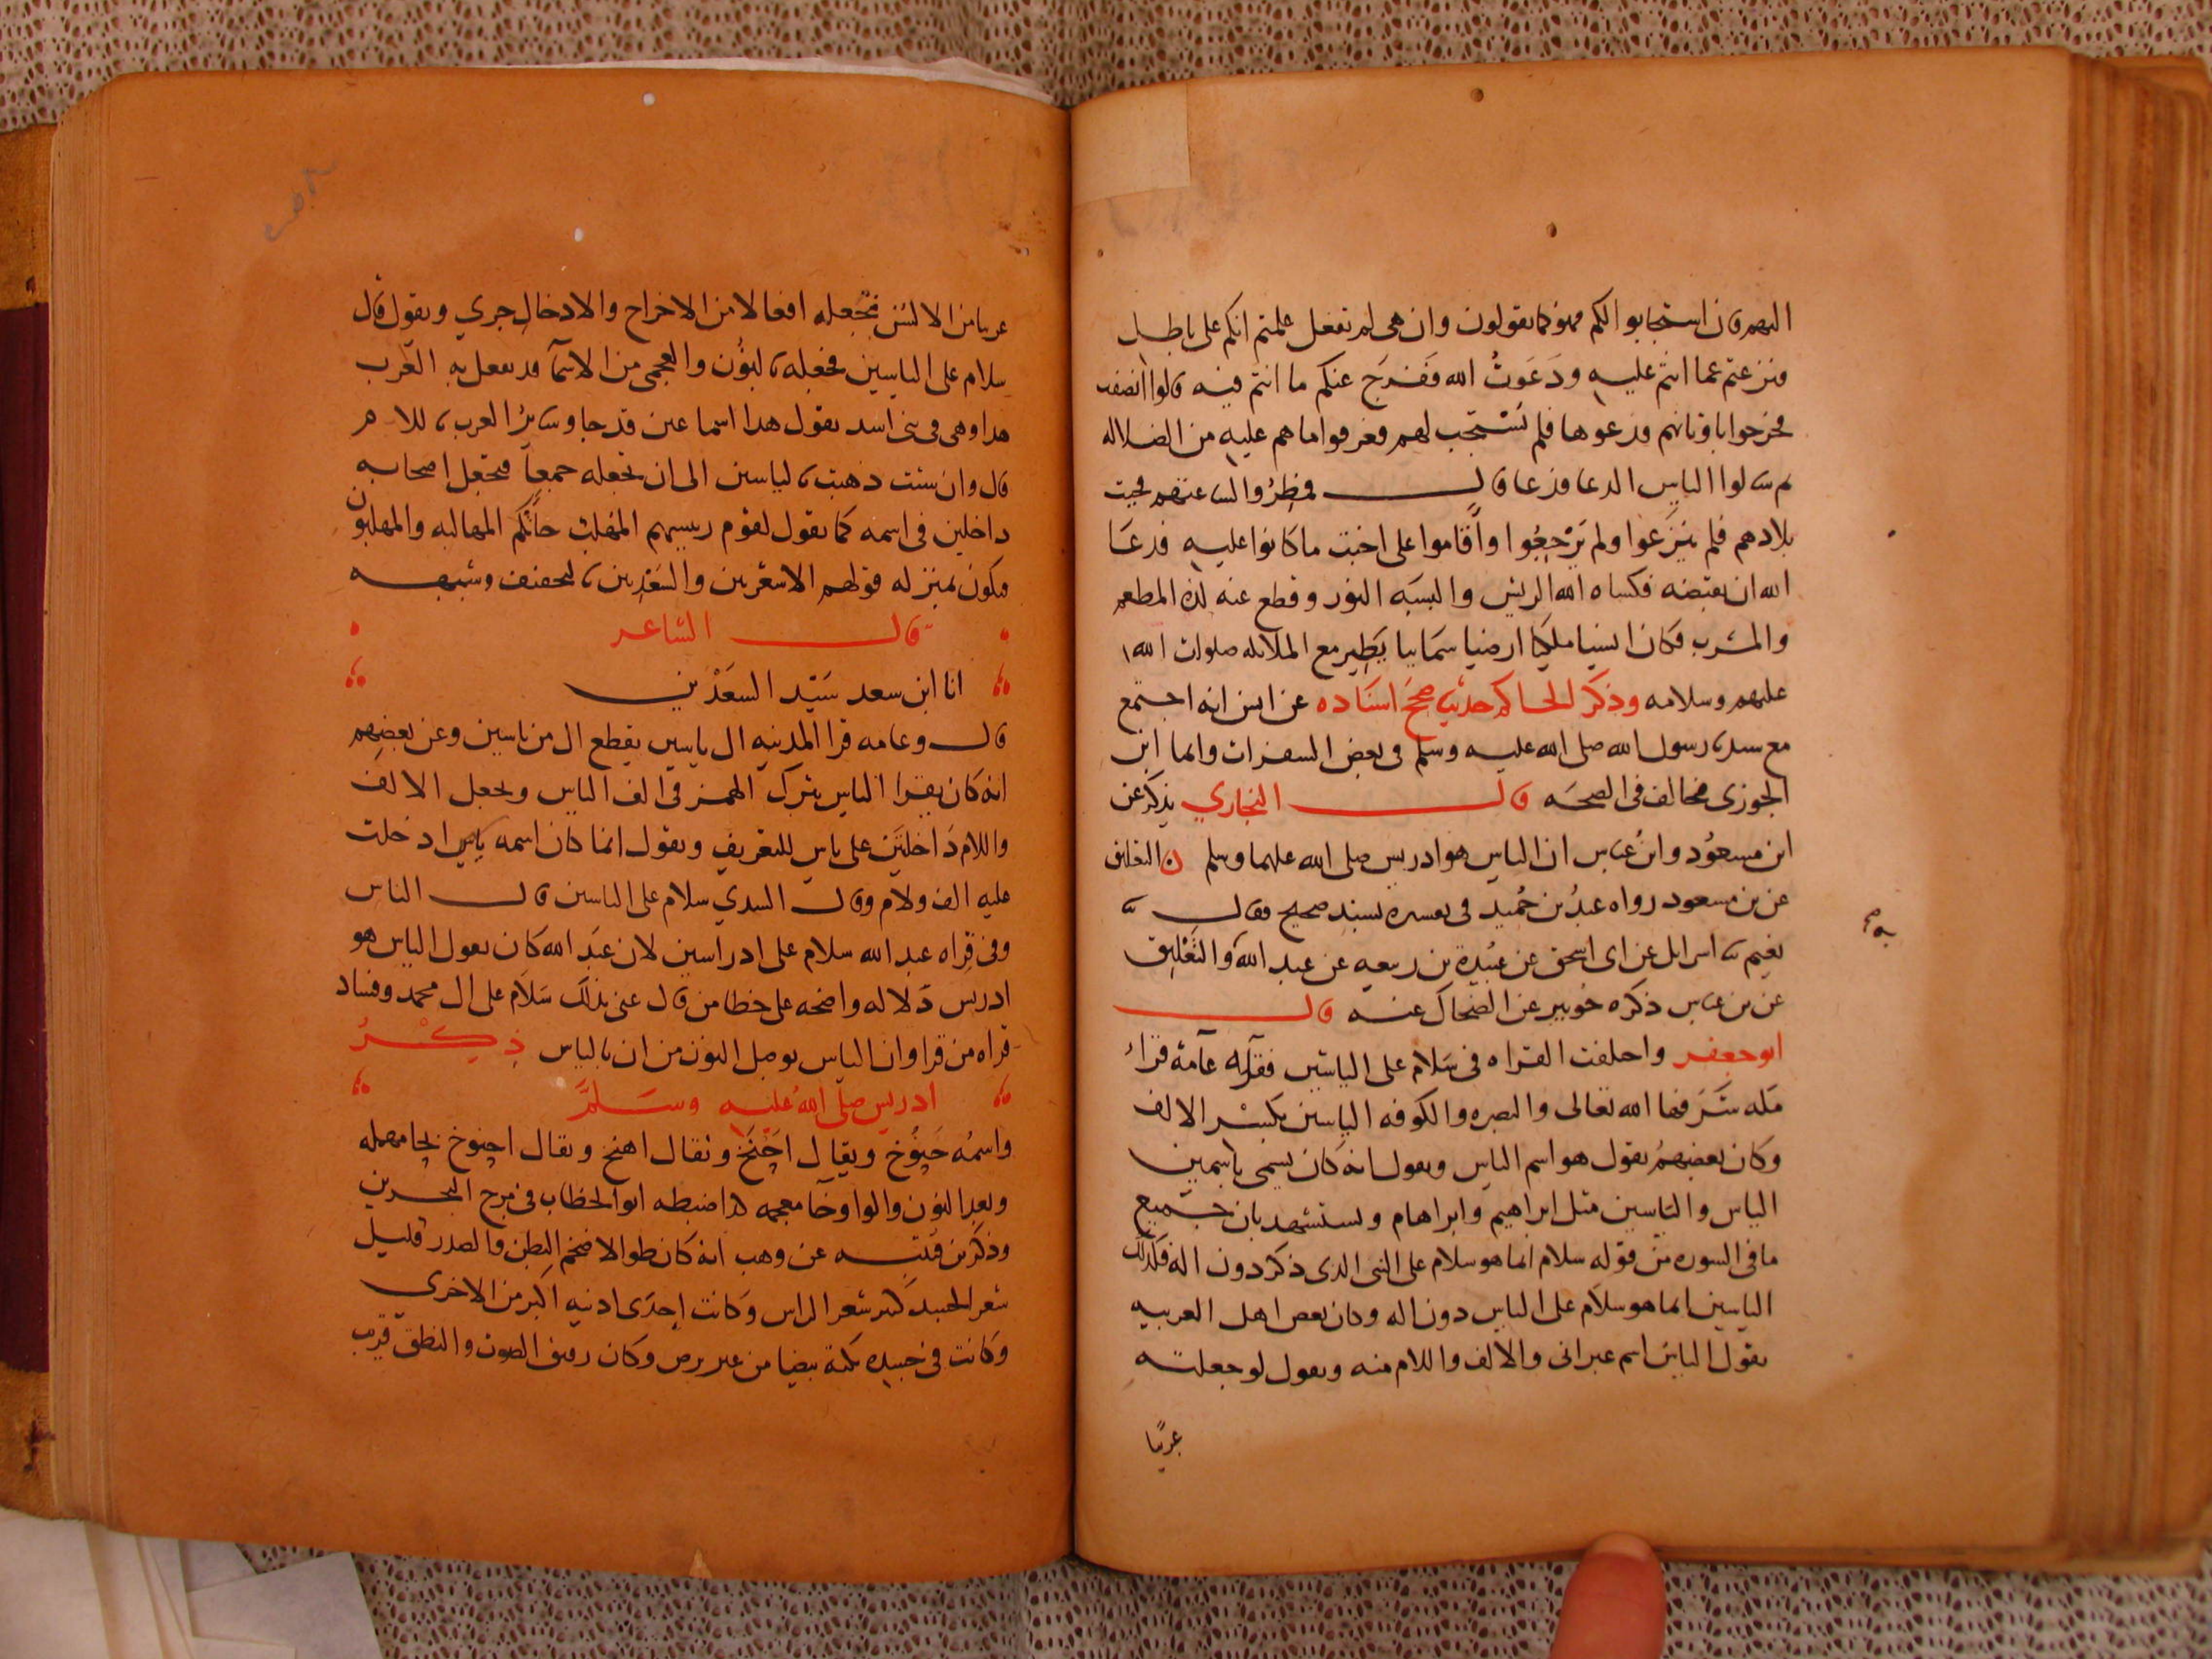 اليهم فان استجابوا لكم فهو كما تقولون وان هى لم تفعل علمتم انكم على باطل
فنزعتم عما انتم عليه ودَعَوتُ الله ففَرَج عنكم ما انتم فيه قالوا انصفت
فخرجوا باوثانهم فدعوها فلم تستجب لهم فعرفوا ما هم عليه من الضلاله
ثم سالوا الياس الدعا فدعا قال فمطِرُوا لساعتهم فحيت
بلادهم فلم ينزعوا ولم يَرْجِعُوا واَقاموا على اخبث ما كانوا عليه فدعَا
الله ان يقبضه فكساه الله الريش والبسَه النور وقطع عنه لذه المطعم
والمشرب فكان انسيا ملكيا ارضيا سَمَاييا يَطِير مع الملائكه صلوات الله
عليهم وسلامه وذكر الحاكم حديث صحح اسنَاده عن انس انه اجتمع
مع سيدنا رسول الله صلى الله عليه وسلم فى بعض السفرات واما ابن
الجوزى فخالف فى الصحَه قال البخاري يذكر عن
ابن مسعُود وابن عباس ان الياس هو ادريس صلى الله عليهما وسلم ن التعليق
عن بن مسعود رواه عبدُ بن حُميد فى تفسيره بسند صحيح فقال ثنا
نعيم ثنا اسرايل عن ابى اسحق عن عبيدة بن ربيعه عن عبد الله والتعْلِيق
عن بن عباس ذكره جُويبر عن الضحاك عنه قال
ابو جعفر واختلفت القراه فى سَلام على الياسين فقرَاته عامة قراءُ
مكه شَرفها الله تعالى والبصره والكوفه الياسين بكَسْر الالف
وكان بعضهمُ يقول هو اسم الياس ويقول انه كان يسمى باسمين
الياس والياسين مثل ابراهيم وابراهام ويستشهد بان جميع
ما فى السوره من قوله سلام انما هو سلام على النبى الذى ذكر دون اله فكذلك
الياسين انما هو سلام على الياس دون اله وكان بعض اهل العربيه
يقول الياس اسم عبرانى والالف واللام منه ويقول لو جعلته
عربيًا
عربيا من الاليس فتجعله افعالا من الاخراج والادخال جري ويقول قال
سلام على الياسين فجعله بالنُون والعجمى من الاسمآ قد تفعل به العَرب
هذا وهى فى بنى اسد يقول هذا اسماعين قد جا وسَايرُ العرب باللام
قال وان شئت ذهبت بالياسين الى ان تجعله جمعاً فتجعل اصحابه
داخلين فى اسمه كما تقول لقوم رييسهم المهلب جاَتكم المهالبه والمهلبون
فيكون بمنزله قولهم الاشعرين والسَعْدين بالتخفيف وشبهه
قال الشاعر
انا ابن سعد سَيّد السعَدْين
قال وعامه قرا المدينه ال ياسين بقطع ال من ياسين وعن بعضهم
انه كان يقرا الياس بترك الهمز فى الف الياس ويجعل الالف
واللام دَاخلتَين على ياس للتعريف ويقول انما كان اسمه ياس ادخلت
عليه الف ولام وقال السدي سلام على الياسين قال الياس
وفى قراه عبد الله سلام على ادراسين لان عبَد الله كان يقول الياس هو
ادريس دَلاله واضحه على خطا من قال عنى بذلك سَلام على ال محمد وفساد
قراه من قرا وان الياس بوصل النون من ان بالياس ذِكْرُ
ادريس صلى الله عليه وسلّم
واسمُه خَنُوخ ويقال اخَنَخ ويقال اهنخ ويقال احنوخ بحا مهمله
وبعدِ النون والواو خآ معجمه كذا ضبطه ابو الخطاب فى مرج البحرين
وذكر بن قتيبه عن وهب انه كان طوالا ضخم البطن والصدر قليل
شعر الجسد كثير شعر الراس وكانت إحدَى اذنيه اكبر من الاخرى
وكانت فى جسده نكتة بيضا من غير برص وكان رقيق الصوت والنطق قريب